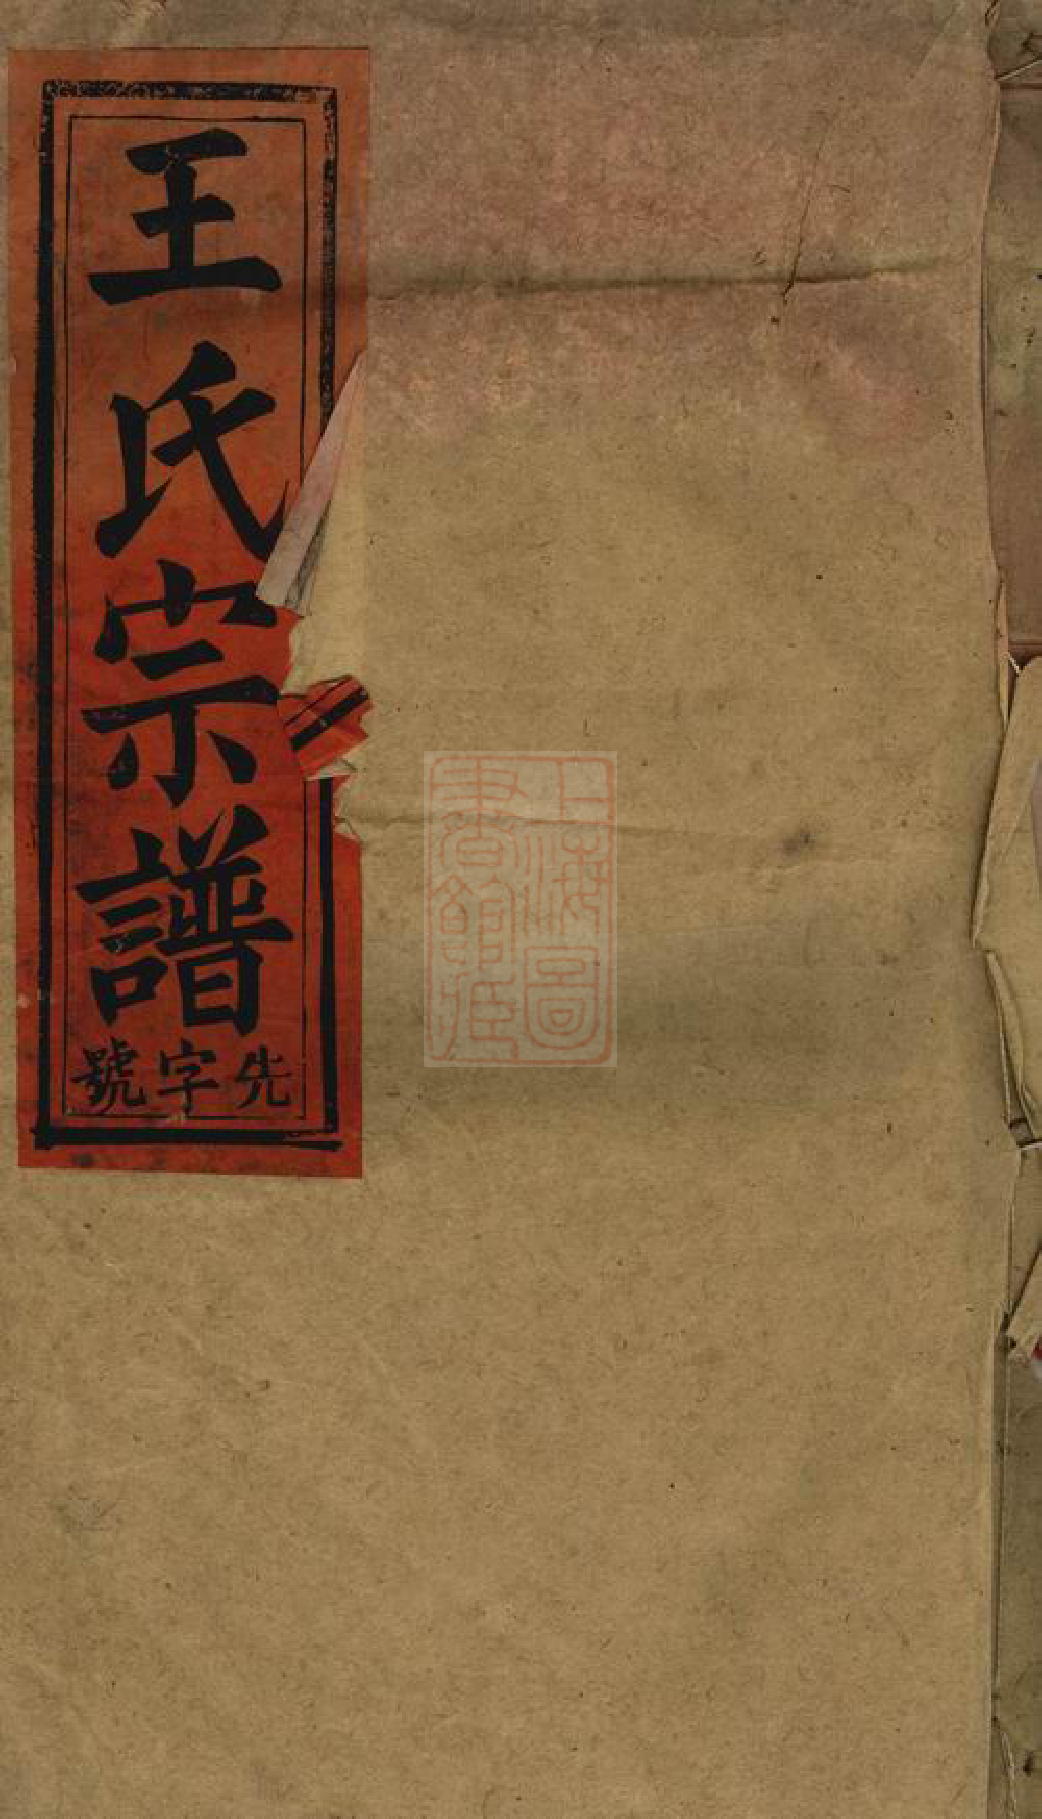 王氏宗譜
先字號
上海圖
書館藏